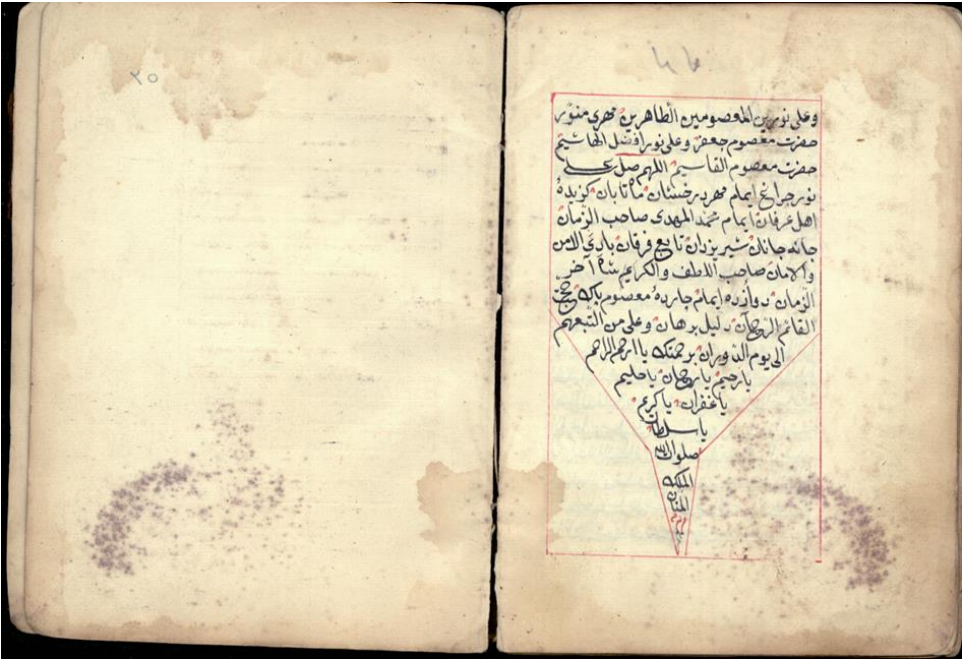 وعلى نورين المعصومين الطاهرين مهرى منور
حضرت معصوم جعفر وعلى نور افضل الهاشيم
حضرت معصوم القاسيم اللهم صل على
نور چراغ ايمام مهرد رخستان ماه تابان كزيده
اهل عرفان ايمام محمد المهدى صاحب الزمان
جانه جانان شير يزدان تابع فرقان بادي الامن
والامان صاحب اللطف والكريم شاه آخر
الزمان دوازده ايمام جارده معصوم پاك حجت
القائم الروحان دليل برهان وعلى من التبعهم
الى يوم الدوران برحمتك يا ارحم الراحم
يا رحيم يا رحمان يا حليم
يا غفران يا كريم
يا سلطان
صلوات الله
الملك
المنان
٢٥